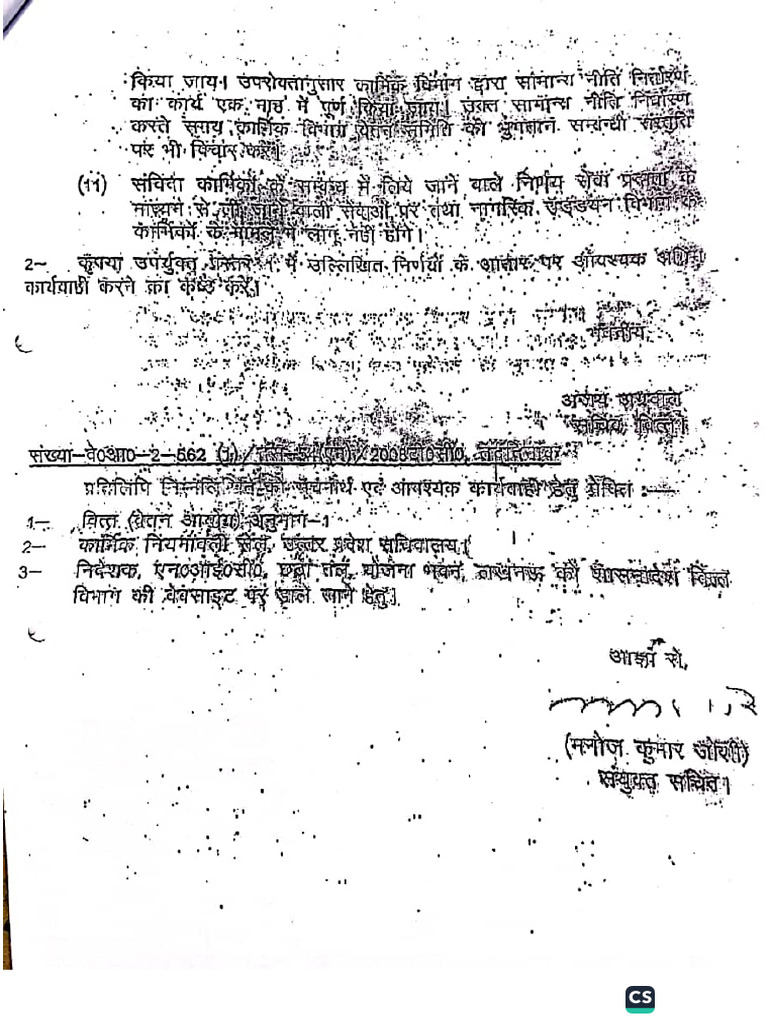 किया जाय। उपरोक्तानुसार कार्मिक विभाग द्वारा सामान्य नीति निर्धारण
का कार्य एक माह में पूर्ण किया जाय। उक्त सामान्य नीति निर्धारण
करते समय कार्मिक विभाग वेतन समिति की भुगतान सम्बन्धी संस्तुति
पर भी विचार करें।
(11) संविदा कार्मिकों के सम्बन्ध में लिये जाने वाले निर्णय सेवा प्रदाता के
माध्यम से ली जाने वाली सेवाओं पर तथा नागरिक उड्डयन विभाग के
कार्मिकों के मामले में लागू नहीं होंगे।
2- कृपया उपर्युक्त प्रस्तर-1 में उल्लिखित निर्णयों के आधार पर आवश्यक अग्रिम
कार्यवाही करने का कष्ट करें।
भवदीय,
अजय अग्रवाल
सचिव, वित्त।
संख्या-वे0आ0-2-562 (1)/दस-54(एम)/2008टी0सी0, तद्दिनांक
प्रतिलिपि निम्नलिखित को सूचनार्थ एवं आवश्यक कार्यवाही हेतु प्रेषित :—
1- वित्त (वेतन आयोग) अनुभाग-1
2- कार्मिक नियमावली सेल, उत्तर प्रदेश सचिवालय।
3- निदेशक, एन0आई0सी0, छठा तल, योजना भवन, लखनऊ को शासनादेश वित्त
विभाग की वेबसाइट पर डाले जाने हेतु।
आज्ञा से,
(मनोज कुमार जोशी)
संयुक्त सचिव।
CS